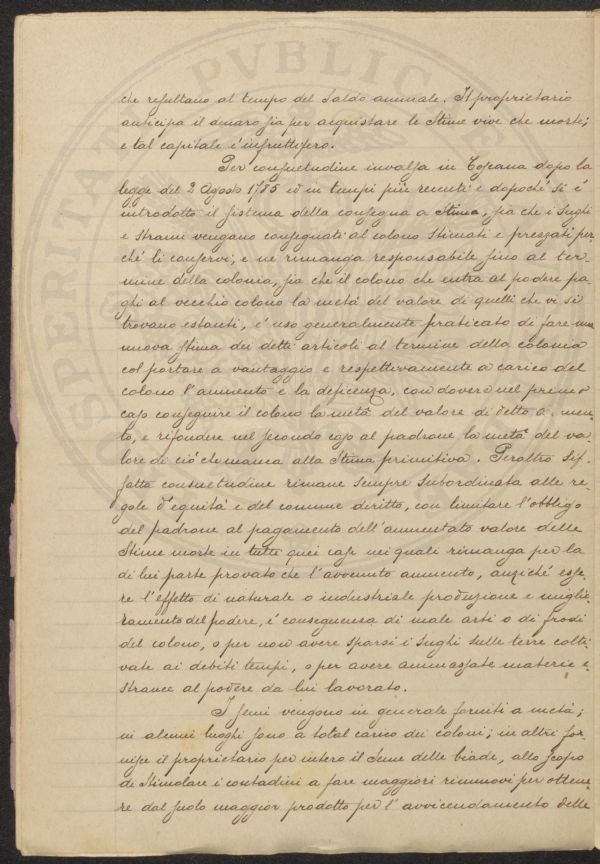 che resultano al tempo del Saldo annuale. Il proprietario
anticipa il denaro sia per acquistare le Stime vive che morte;
e tal capitale è infruttifero.
Per consuetudine invalsa in Toscana dopo la
legge del 2 Agosto 1785 ed in tempi più recenti e dopoché si è
introdotto il sistema della consegna a Stima, sia che i Sughi
e Strami vengano consegnati al colono Stimati e prezzati per-
ché li conservi; e ne rimanga responsabile fino al ter-
mine della colonia, sia che il colono che entra al podere pa-
ghi al vecchio colono la metà del valore di quelli che vi si
trovano estanti, è uso generalmente praticato di fare una
nuova Stima dei detti articoli al termine della colonia
col portare a vantaggio e respettivamente a carico del
colono l'aumento e la deficenza, con dovere nel primo
caso conseguire il colono la metà del valore di detto aumen-
to, e rifondere nel secondo caso al padrone la metà del va-
lore di ciò che manca alla Stima primitiva. Peraltro sif-
fatta consuetudine rimane sempre subordinata alle re-
gole d'equità e del comune diritto, con limitare l'obbligo
del padrone al pagamento dell'aumentato valore delle
Stime morte in tutti quei casi nei quali rimanga per la
di lui parte provato che l'avvenuto aumento, anziché esse-
re l'effetto di naturale o industriale produzione e miglio-
ramento del podere, è conseguenza di male arti o di frodi
del colono, o per non avere sparsi i Sughi sulle terre colti-
vate ai debiti tempi, o per avere ammassate materie e-
stranee al podere da lui lavorato.
I semi vengono in generale forniti a metà;
in alcuni luoghi sono a total carico dei coloni; in altri for-
nisce il proprietario per intero il Seme delle biade, allo scopo
di Stimolare i contadini a fare maggiori rinnuovi per ottene-
re dal suolo maggior prodotto per l'avvicendamento delle